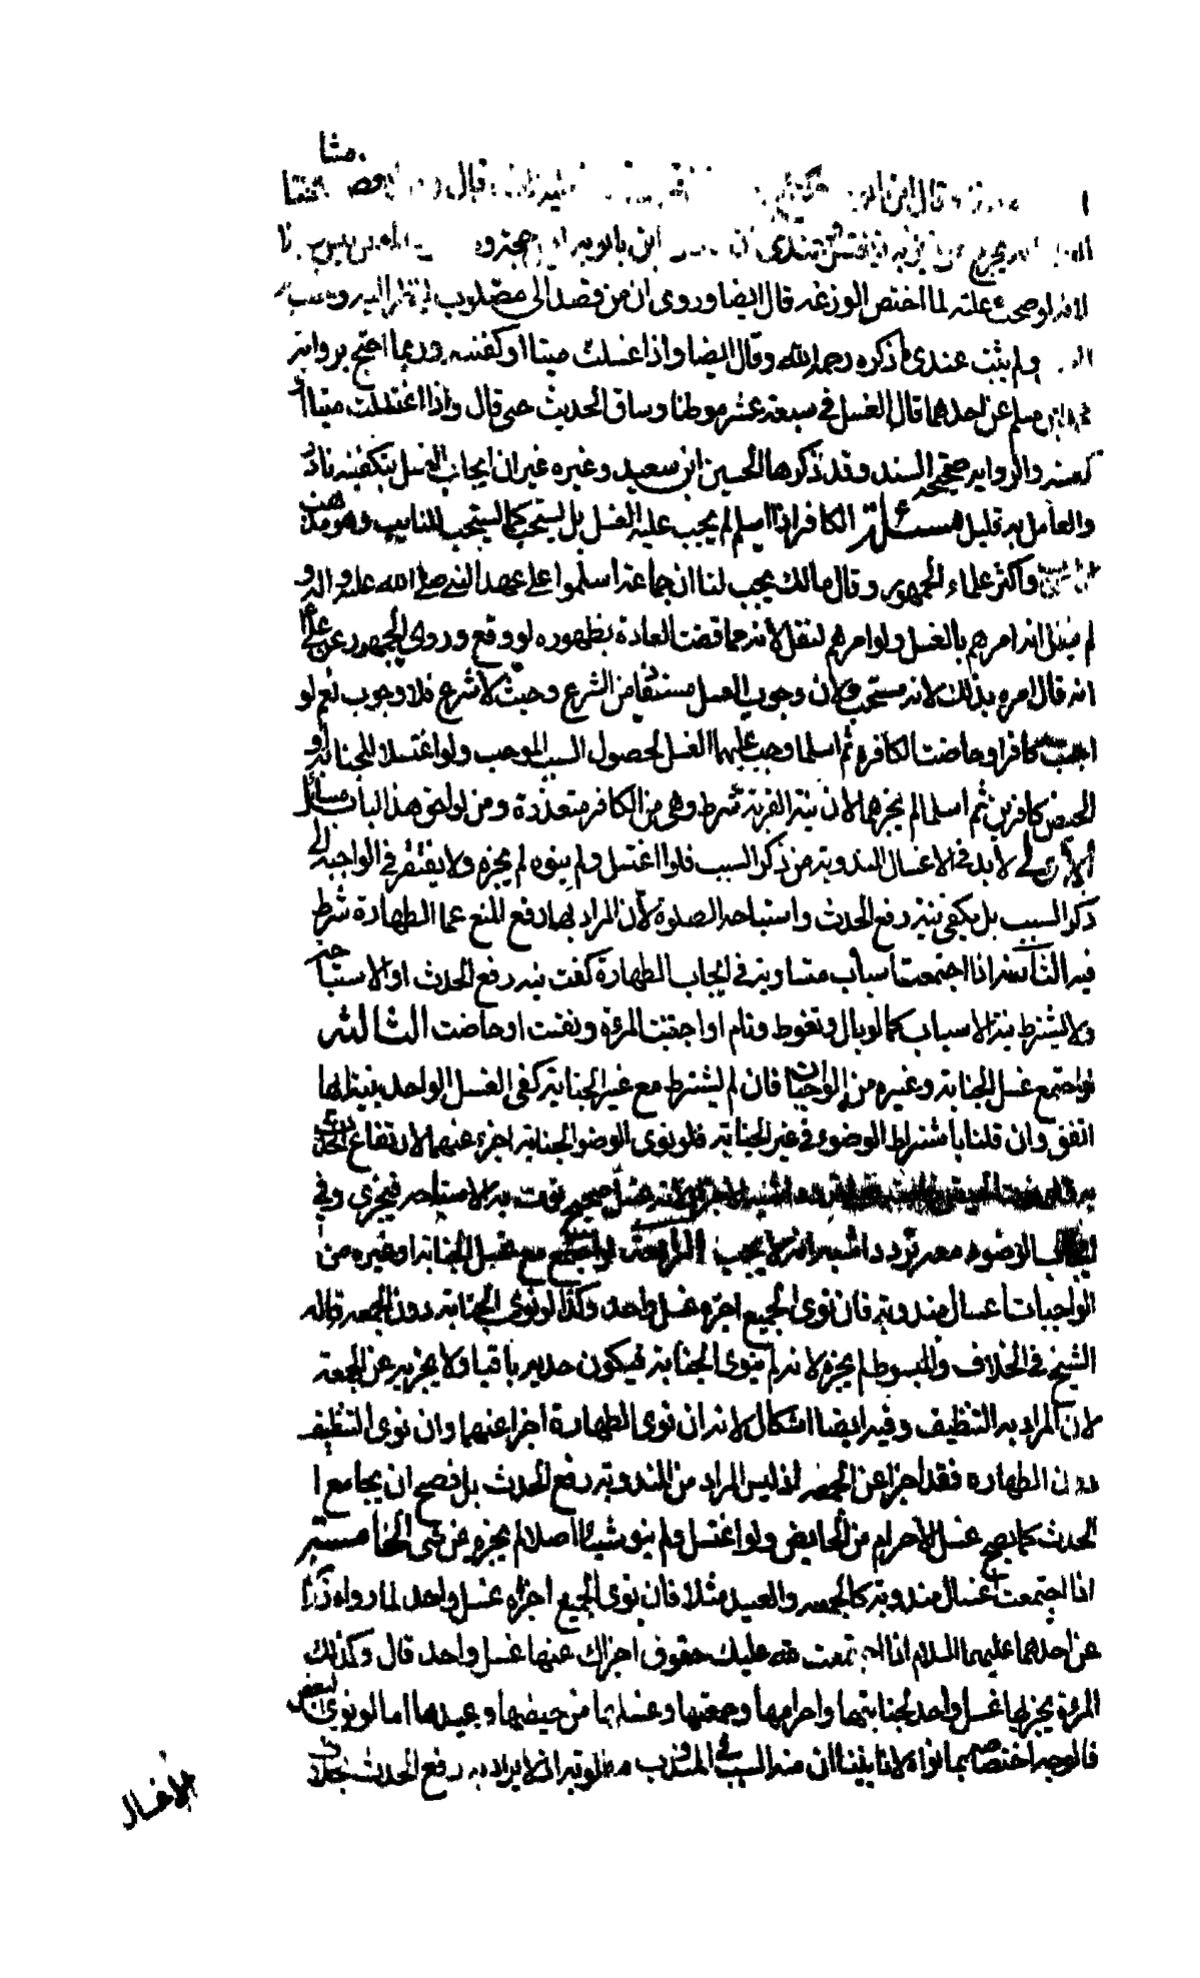 مشا
وقال ابن قال
ابن بابويه
لانه لو صحت علته لما اختص الوزغه قال ايضا وروى ان من قصد الى مصلوب لينظر اليه
ولم يثبت عندى ما ذكره رحمه الله وقال ايضا واذا غسلت ميتا او كفنته وربما احتج برواية
مسلم عن احدهما قال الغسل في سبعة عشر موطنا وساق الحديث حتى قال واذا غسلت ميتا او
كفنته والرواية صحيحة السند وقد ذكرها الحسين ابن سعيد وغيره غير ان ايجاب الغسل بتكفينه نادر
والعامل به قليل مسئلة الكافر اذا اسلم لم يجب عليه الغسل بل يستحب كما يستحب للتايب وهو مذهب
واكثر علماء الجمهور وقال مالك يجب لنا ان جماعة اسلموا على عهد النبي صلى الله عليه واله و
لم ينقل انه امرهم بالغسل ولو امرهم لنقل لانه مما قضت العادة بظهوره لو وقع وروى الجمهور عن على
انه قال امره بذلك لانه مستحب ولان وجوب الغسل مستفاد من الشرع وحيث لا شرع فلا وجوب نعم لو
اجنب كافرا وحاضت الكافرة ثم اسلما وجب عليهما الغسل لحصول السبب الموجب ولو اغتسلا للجنابة او
الحيض كافرين ثم اسلما لم يجزهما لان نية القربة شرط وهى من الكافر متعذرة ومن لواحق هذا الباب مسائل
الاولى لا بد في الاغسال المندوبة من ذكر السبب فلو اغتسل ولم ينوه لم يجزه ولا يفتقر في الواجبة الى
ذكر السبب بل يكفى نية رفع الحدث واستباحة الصلوة لان المراد بها رفع المنع عما الطهارة شرط
فيه الثانية اذا اجتمعت اسباب متساوية في ايجاب الطهارة كفت نية رفع الحدث او الاستباحة
ولا يشترط نية الاسباب كما لو بال وتغوط ونام او اجنبت المرئة ونفست او حاضت الثالثة
لو اجتمع غسل الجنابة وغيره من الواجبات فان لم يشترط مع غير الجنابة كفى الغسل الواحد بنية ايها
اتفق وان قلنا باشتراط الوضوء في غير الجنابة فلو نوى الوضو الجنابة اجزء عنهما لارتفاع الحدث
به غسل صحيح نويت به الاستباحه فيجزى وفي
الوضوء معه تردد اشبهه انه لا يجب الرابعة لو اجتمع مع غسل الجنابة او غيره من
الواجبات اغسال مندوبة فان نوى الجميع اجزء غسل واحد وكذا لو نوى الجنابة دون الجمعه قاله
الشيخ في الخلاف والمبسوط لم يجزه لانه لم ينوى الجنابة فيكون حدثه باقيا ولا يجزيه عن الجمعة
لان المراد به التنظيف وفيه ايضا اشكال لانه ان نوى الطهارة اجزا عنهما وان نوى التنظيف
دون الطهاره فقد اجزا عن الجمعه اذ ليس المراد من المندوبة رفع الحدث بل فصح ان يجامع ا
لحدث كما يصح غسل الاحرام من الحايض ولو اغتسل ولم ينو شيئا اصلا لم يجزه عن شى الخامسة
اذا اجتمعت اغسال مندوبة كالجمعه والعيد مثلا فان نوى الجميع اجزاه غسل واحد لما رواه زرارة
عن احدهما عليهما السلام اذا اجتمعت لله عليك حقوق اجزاك عنها غسل واحد قال وكذلك
المرئة يجزيها غسل واحد لجنابتها واحرامها وجمعتها وغسلها من حيضها وعيدها اما لو نوى البعض
فالوجه اختصاصه بما نواه لانا بينا ان نية السبب في المندوب مطلوبة اذ لا يراد به رفع الحدث بخلاف
الاغسال